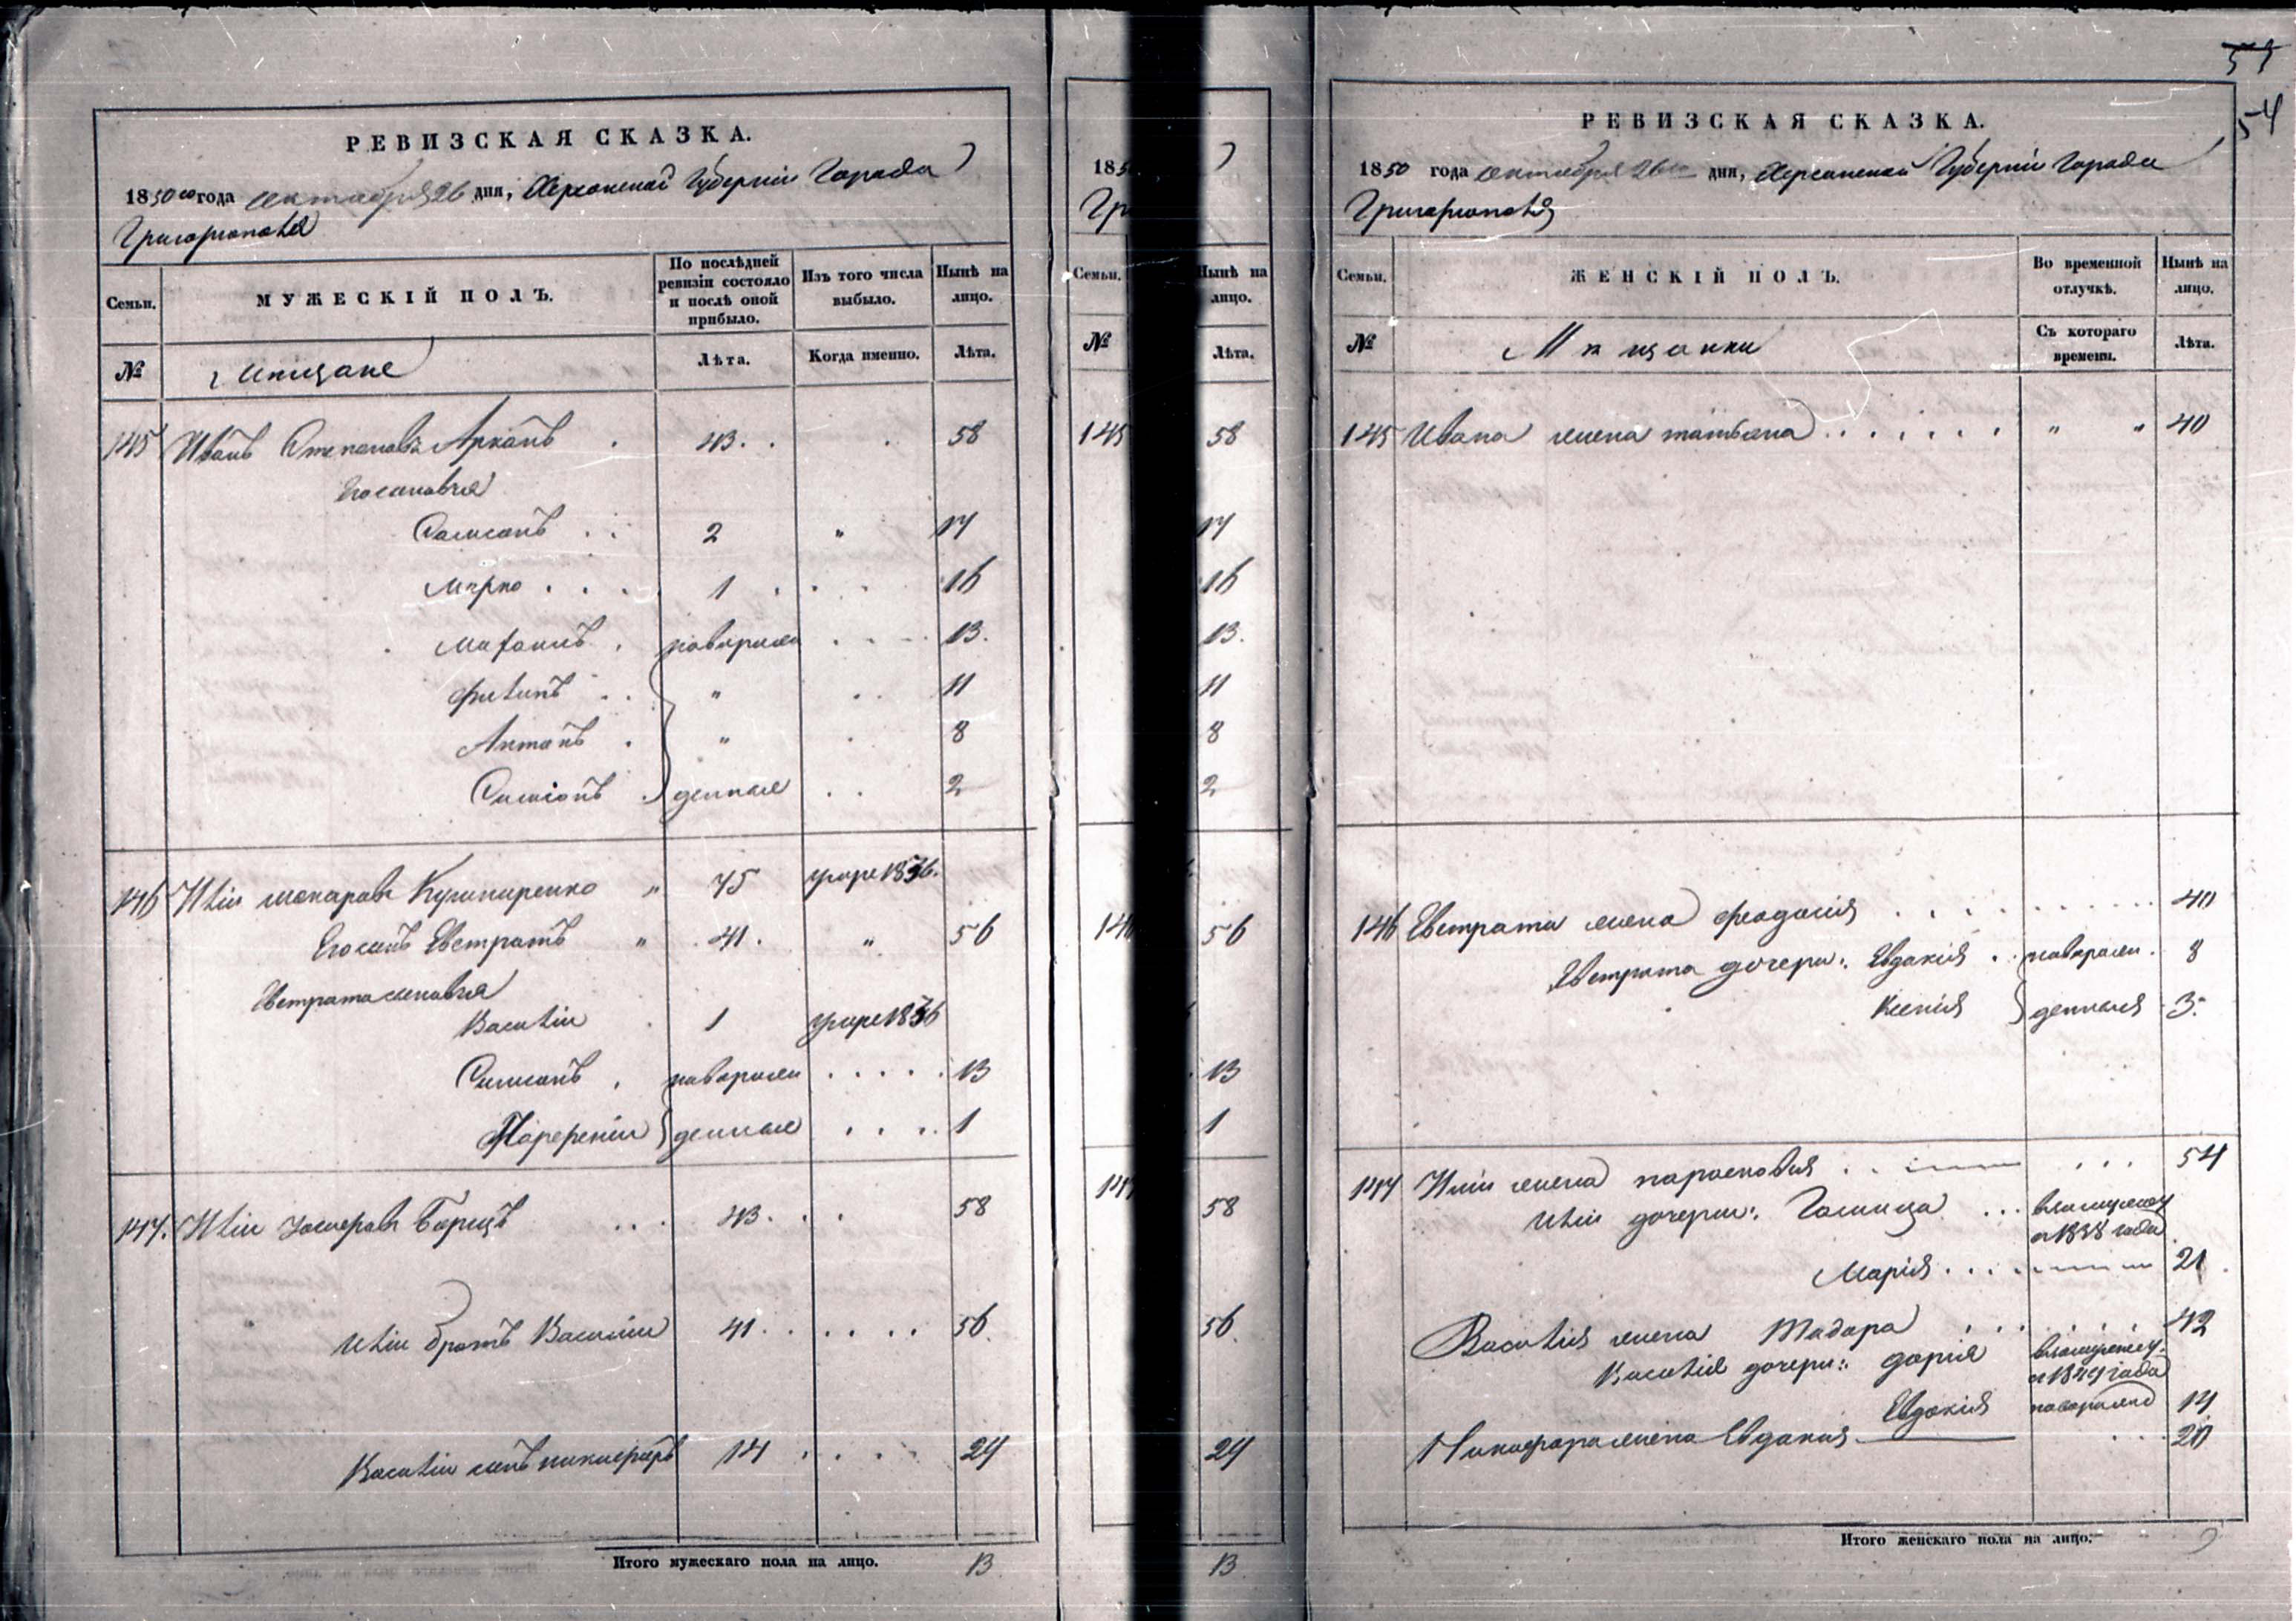 РЕВИЗСКАЯ СКАЗКА.
1850го года октября 26 дня, Херсонской Губернии Города
Григориополя
Семьи. МУЖЕСКІЙ ПОЛЪ. По послѣдней ревизіи состояло и послѣ оной прибыло. Изъ того числа выбыло. Нынѣ на лицо.
№ мещане Лѣта. Когда именно. Лѣта.
145 Иванъ Степановъ 43 58
Его сыновья
Самсонъ 2 17
Марко 1 16
новорож 13.
Филипъ " 11
Антонъ " 8
Симіонъ денные 2
146 Илiи Макаровъ " 75 умре 1836.
Его сынъ Евстратъ " 41. " 56
Евстрата сыновья
Василiи 1 умре 1836
новорожд 13
денные 1
147. Илiи Борщъ 43 58
Илiи братъ Василiи 41 56
Василiи сынъ Никифоръ 14 29
Итого мужескаго пола на лицо. 13
1850
Гр
Семьи. Нынѣ на лицо.
№ Лѣта.
145 58
17
16
13.
11
8
2
146 56
13
1
147 58
56
29
13
57
54
РЕВИЗСКАЯ СКАЗКА.
1850 года октября 26 дня, Херсонской Губерніи Города
Григориополя
Семьи. ЖЕНСКІЙ ПОЛЪ. Во временной отлучкѣ. Нынѣ на лицо.
№ Мѣщанки Съ котораго времени. Лѣта.
145 Ивана жена татьяна " " 40
146 Евстрата жена феодосія 40
Евстрата дочери: Евдокія новорож. 8
Ксенія денныя 3.
147 Илiи жена парасковия 54
Илiи дочери: взамужестве
с 1838 года
Марія 21
Василія жена Тодора 42
Василія дочери: дарія взамужеству
с 1849 года
Евдокія новорожд 14
Никифора жена Евдокия 20
Итого женскаго пола на лицо. 9